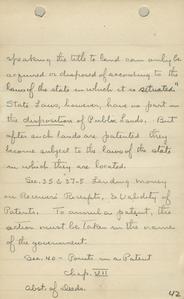 speaking the title to land can only be
acquired or disposed of according to "the
laws of the state in which it is situated"
State Laws, however, have no part in
the disposition of Public Lands. But
after such lands are patented they
become subject to the laws of the state
in which they are located.
Sec. 35 & 37-8 Lending money
on Receivers Receipts, & Validity of
Patents. To annul a patent, the
action must be taken in the name
of the government.
Sec. 40 - Points in a Patent
Chap. VII
Abst. of Deeds.
42